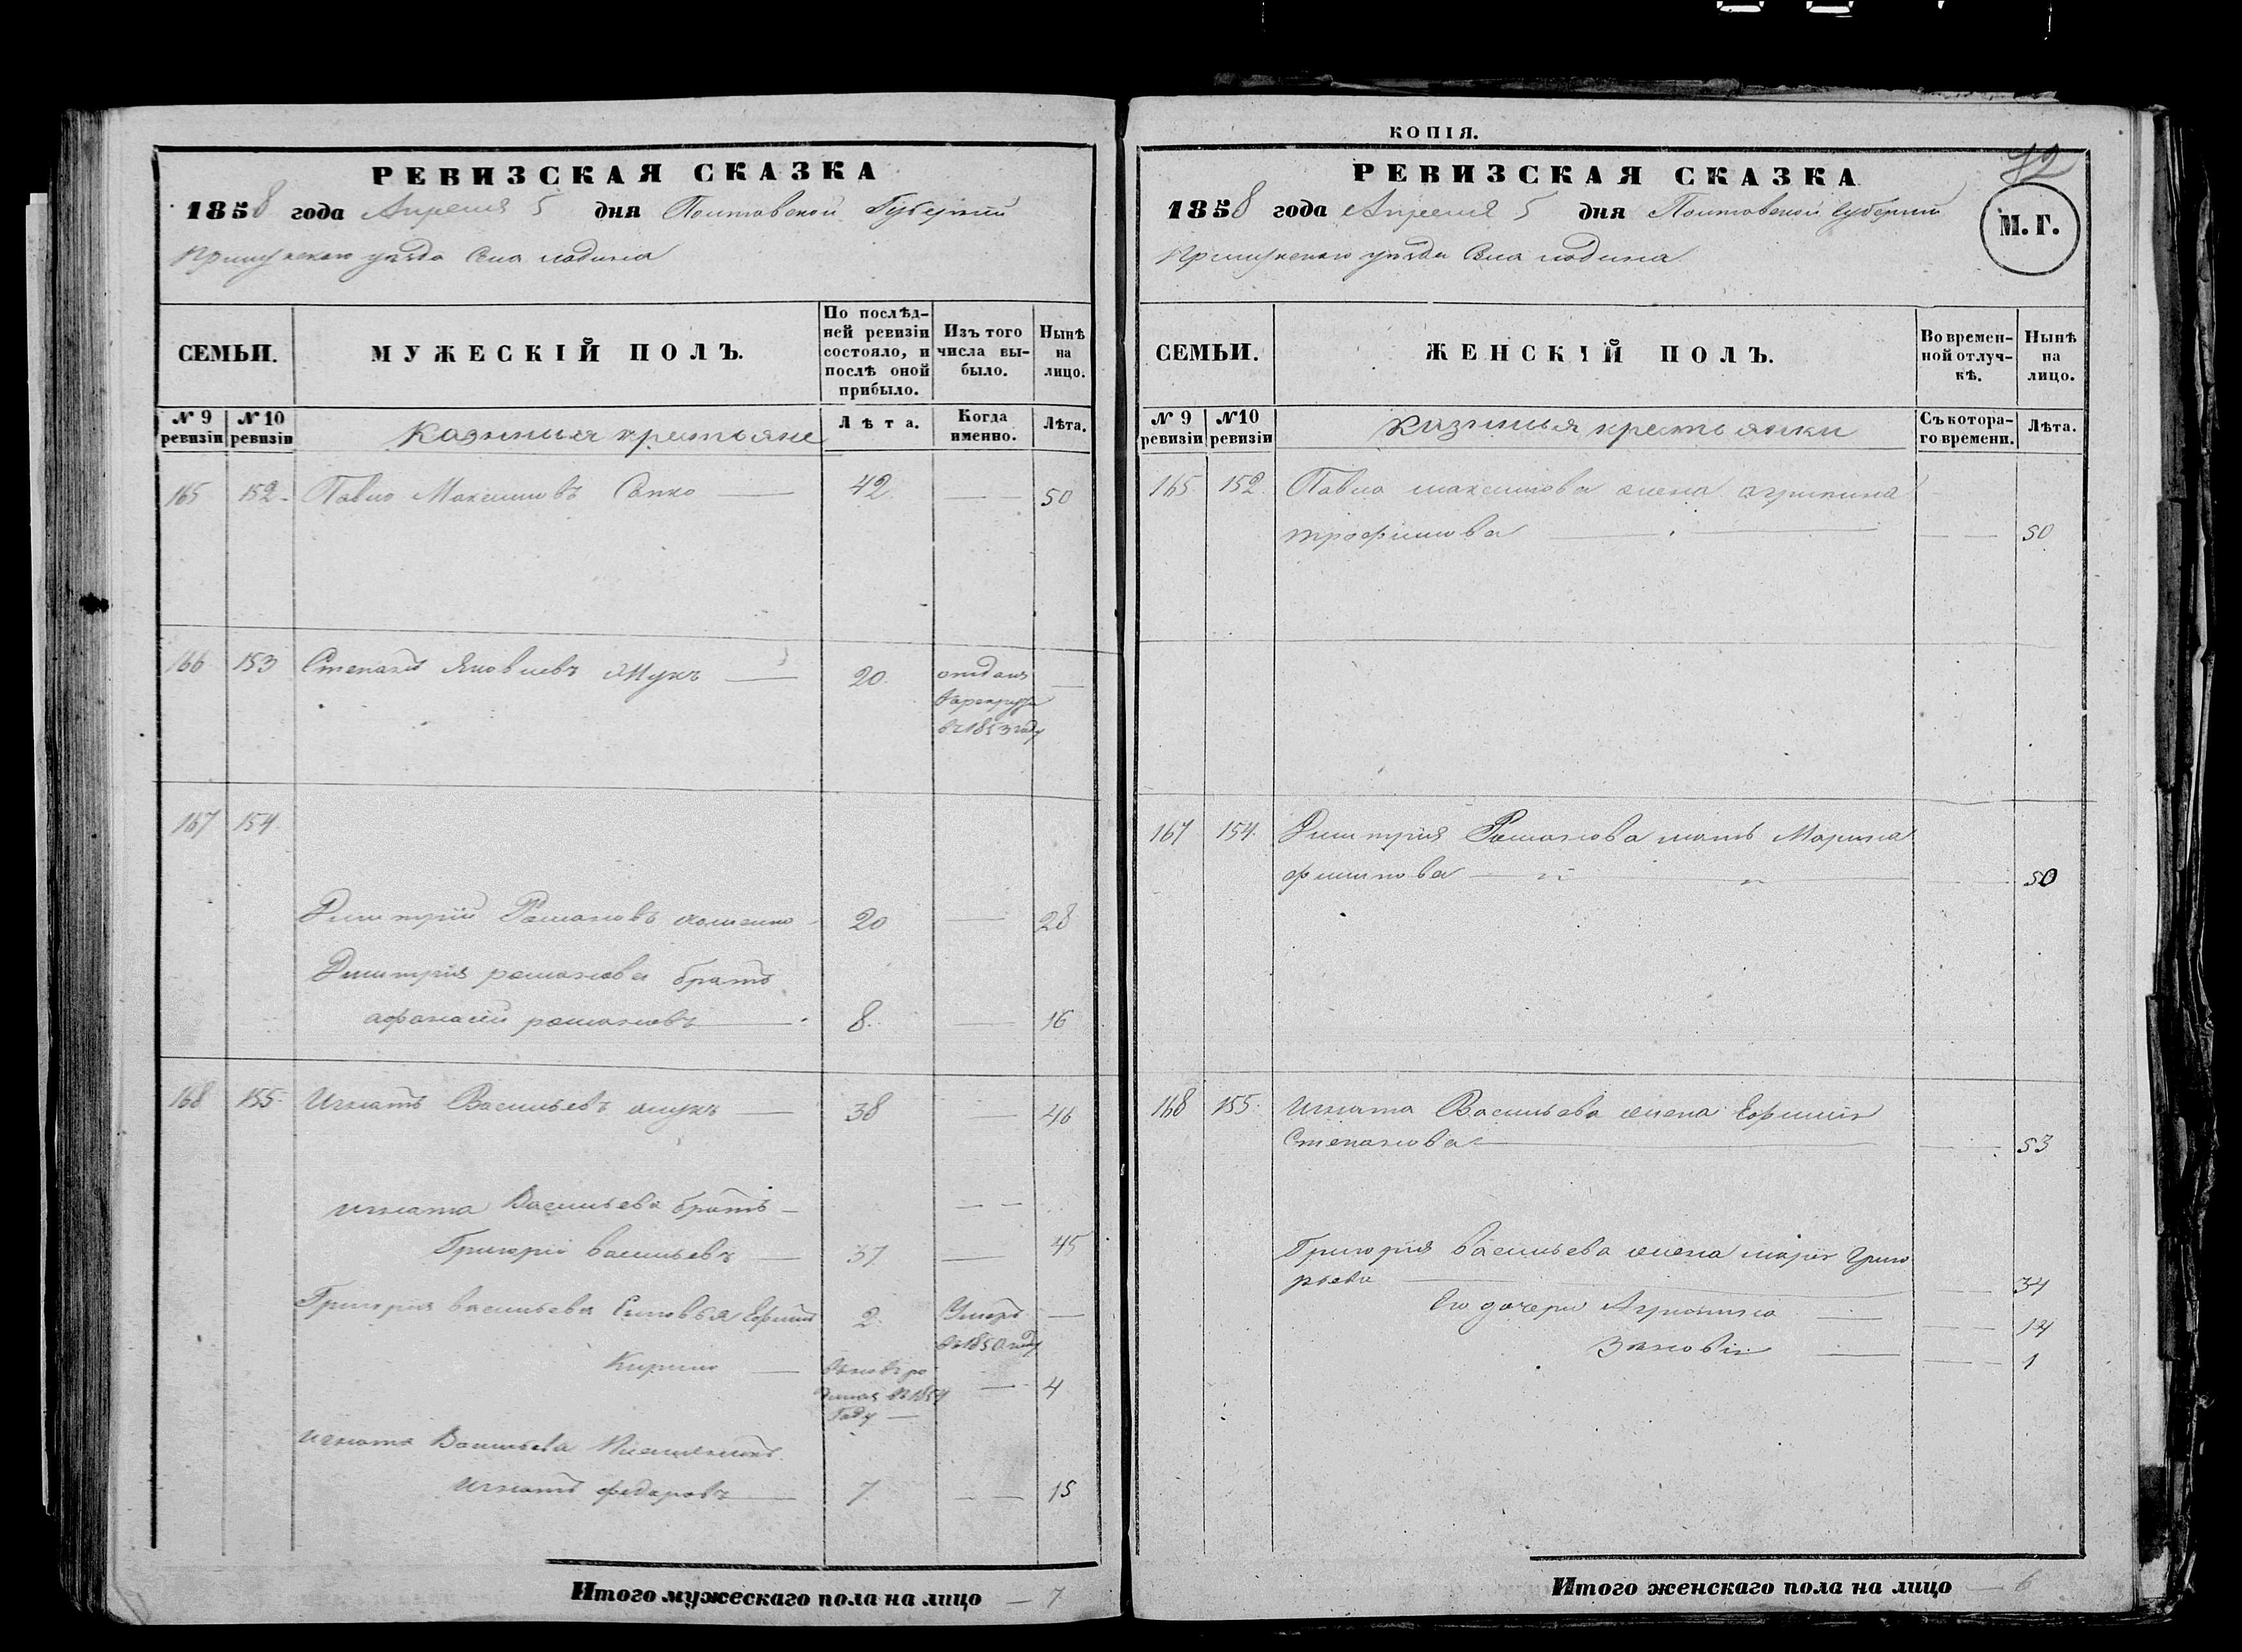 РЕВИЗСКАЯ СКАЗКА
1858 года Апреля 5 дня Полтавской Губернии
Прилукского уезда Села Лодина
СЕМЬИ.
МУЖЕСКІЙ ПОЛЪ.
По послѣд-
ней ревизіи
состояло, и
послѣ оной
прибыло.
Изъ того
числа вы-
было.
Нынѣ
на
лицо.
№ 9
ревизіи
№ 10
ревизіи
Казенные крестьяне
Лѣта.
Когда
именно.
Лѣта.
165 152 Павло Максимовъ 42 50
166 153 Степанъ Яковлевъ Жукъ 20 отданъ
в рекруты
въ 1853 году
167 154
Дмитрій Романовъ 20 28
Дмитрія романова братъ
афанасій романовъ 8 16
168 155 Игнатъ Васильевъ жукъ 38 46
игната Васильева братъ
Григорій васильевъ 37 45
Григорія васильева Сыновья Ефимъ 2 Умеръ
въ 1850 году
Кирило вновь ро
жденъ въ 1854
Году 4
игната Васильева Племянникъ
Игнатъ федоровъ 7 15
Итого мужескаго пола на лицо 7
КОПІЯ.
РЕВИЗСКАЯ СКАЗКА
М. Г.
1858 года Апреля 5 дня Полтавской губернии
Прилукского уезда Села Лодина
СЕМЬИ.
ЖЕНСКІЙ ПОЛЪ.
Во времен-
ной отлуч-
кѣ.
Нынѣ
на
лицо.
№ 9
ревизіи
№10
ревизіи
Казенныя крестьянки
Съ котора-
го времени.
Лѣта.
165 152 Павла максимова жена агрипина
трофимова 50
167 154 Дмитрія Романова мать Марина
филипова 50
168 155 Игната Васильева жена Ефимія
Степанова 53
Григорія васильева жена марія Григо
рьева 34
Его дочери Агрипина 14
Зиновія 1
Итого женскаго пола на лицо 6